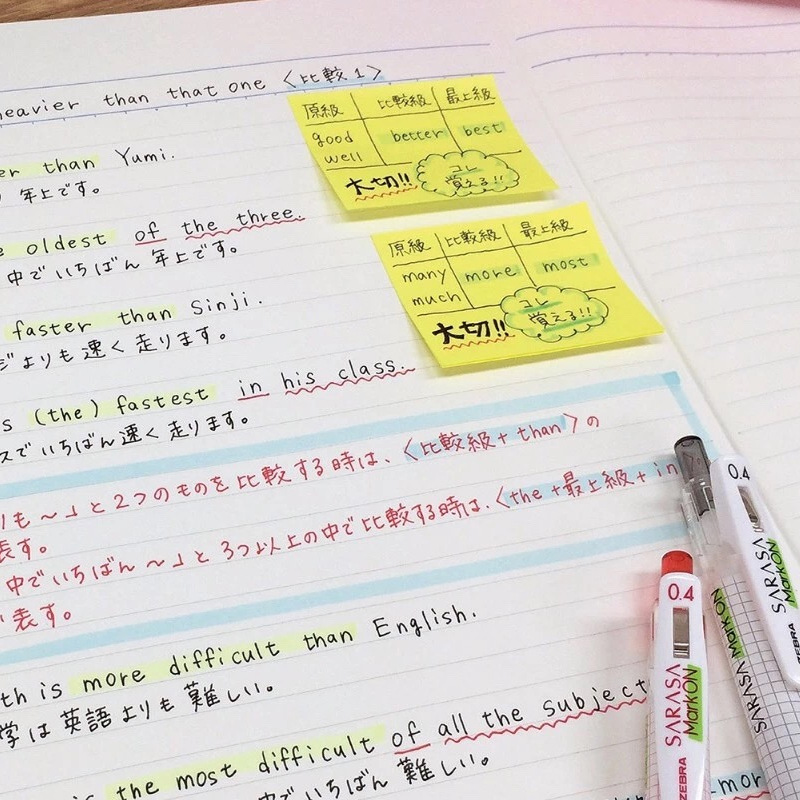 heavier than that one 〈比較1〉
than Yumi.
年上です。
oldest of the three.
中でいちばん年上です。
faster than Sinji.
よりも速く走ります。
(the) fastest in his class.
スでいちばん速く走ります。
りも〜」と2つのものを比較する時は、〈比較級+than〉の
表す。
中でいちばん〜」と3つ以上の中で比較する時は、〈the+最上級+in
表す。
is more difficult than English.
学は英語よりも難しい。
is the most difficult of all the subject
でいちばん難しい。
原級 比較級 最上級
good better best
well
大切!! コレ
覚える!!
原級 比較級 最上級
many more most
much
大切!! コレ
覚える!!
0.4
SARASA
MarkON
ZEBRA
0.4
SARASA
MarkON
ZEBRA
SARASA MarkON